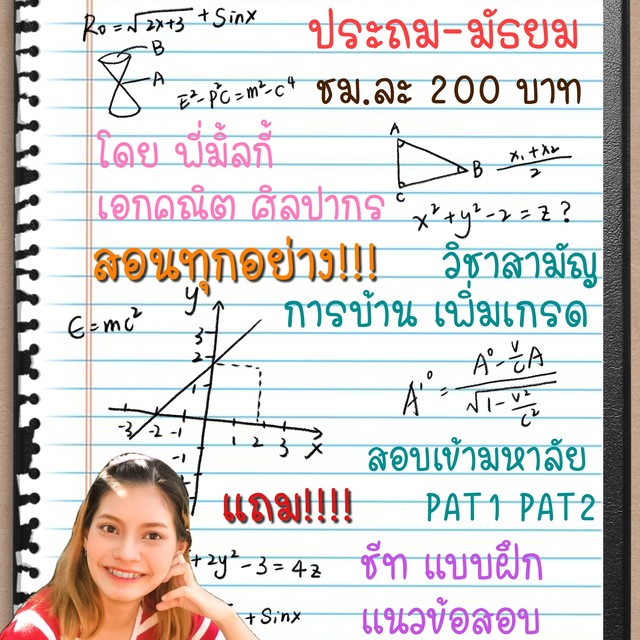 R₀ = √2x+3 + Sinx
ประถม-มัธยม
B
A
E²-P²C=m²-C⁴
ชม.ละ 200 บาท
โดย พี่มิ้ลกี้
A
B
C
x₁+x₂
2
เอกคณิต ศิลปากร
x²+y²-2=z?
สอนทุกอย่าง!!!
วิชาสามัญ
y
การบ้าน เพิ่มเกรด
E=mc²
3
2
1
A'⁰ = A⁰-v/cA
√1-v²/c²
-3 -2 -1 1 2 3 x
-1
สอบเข้ามหาลัย
แถม!!!!
PAT1 PAT2
+2y²-3=4z
ชีท แบบฝึก
+ Sinx
แนวข้อสอบ